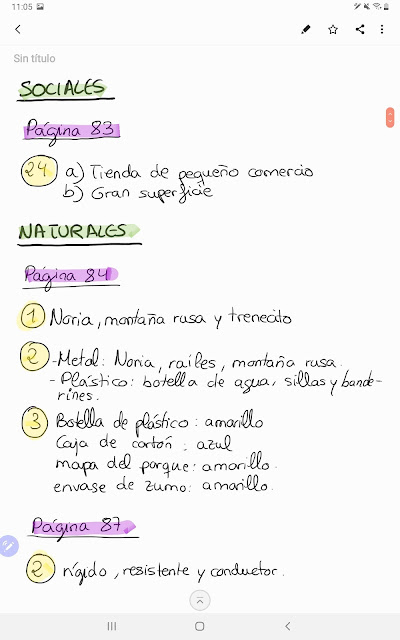 11:05
Sin título
SOCIALES
Página 83
24 a) Tienda de pequeño comercio
b) Gran superficie
NATURALES
Página 84
1 Noria, montaña rusa y trenecito
2 -Metal: Noria, raíles, montaña rusa.
-Plástico: botella de agua, sillas y bande-
rines.
3 Botella de plástico: amarillo
Caja de cartón: azul
mapa del parque: amarillo.
envase de zumo: amarillo.
Página 87
2 rígido, resistente y conductor.